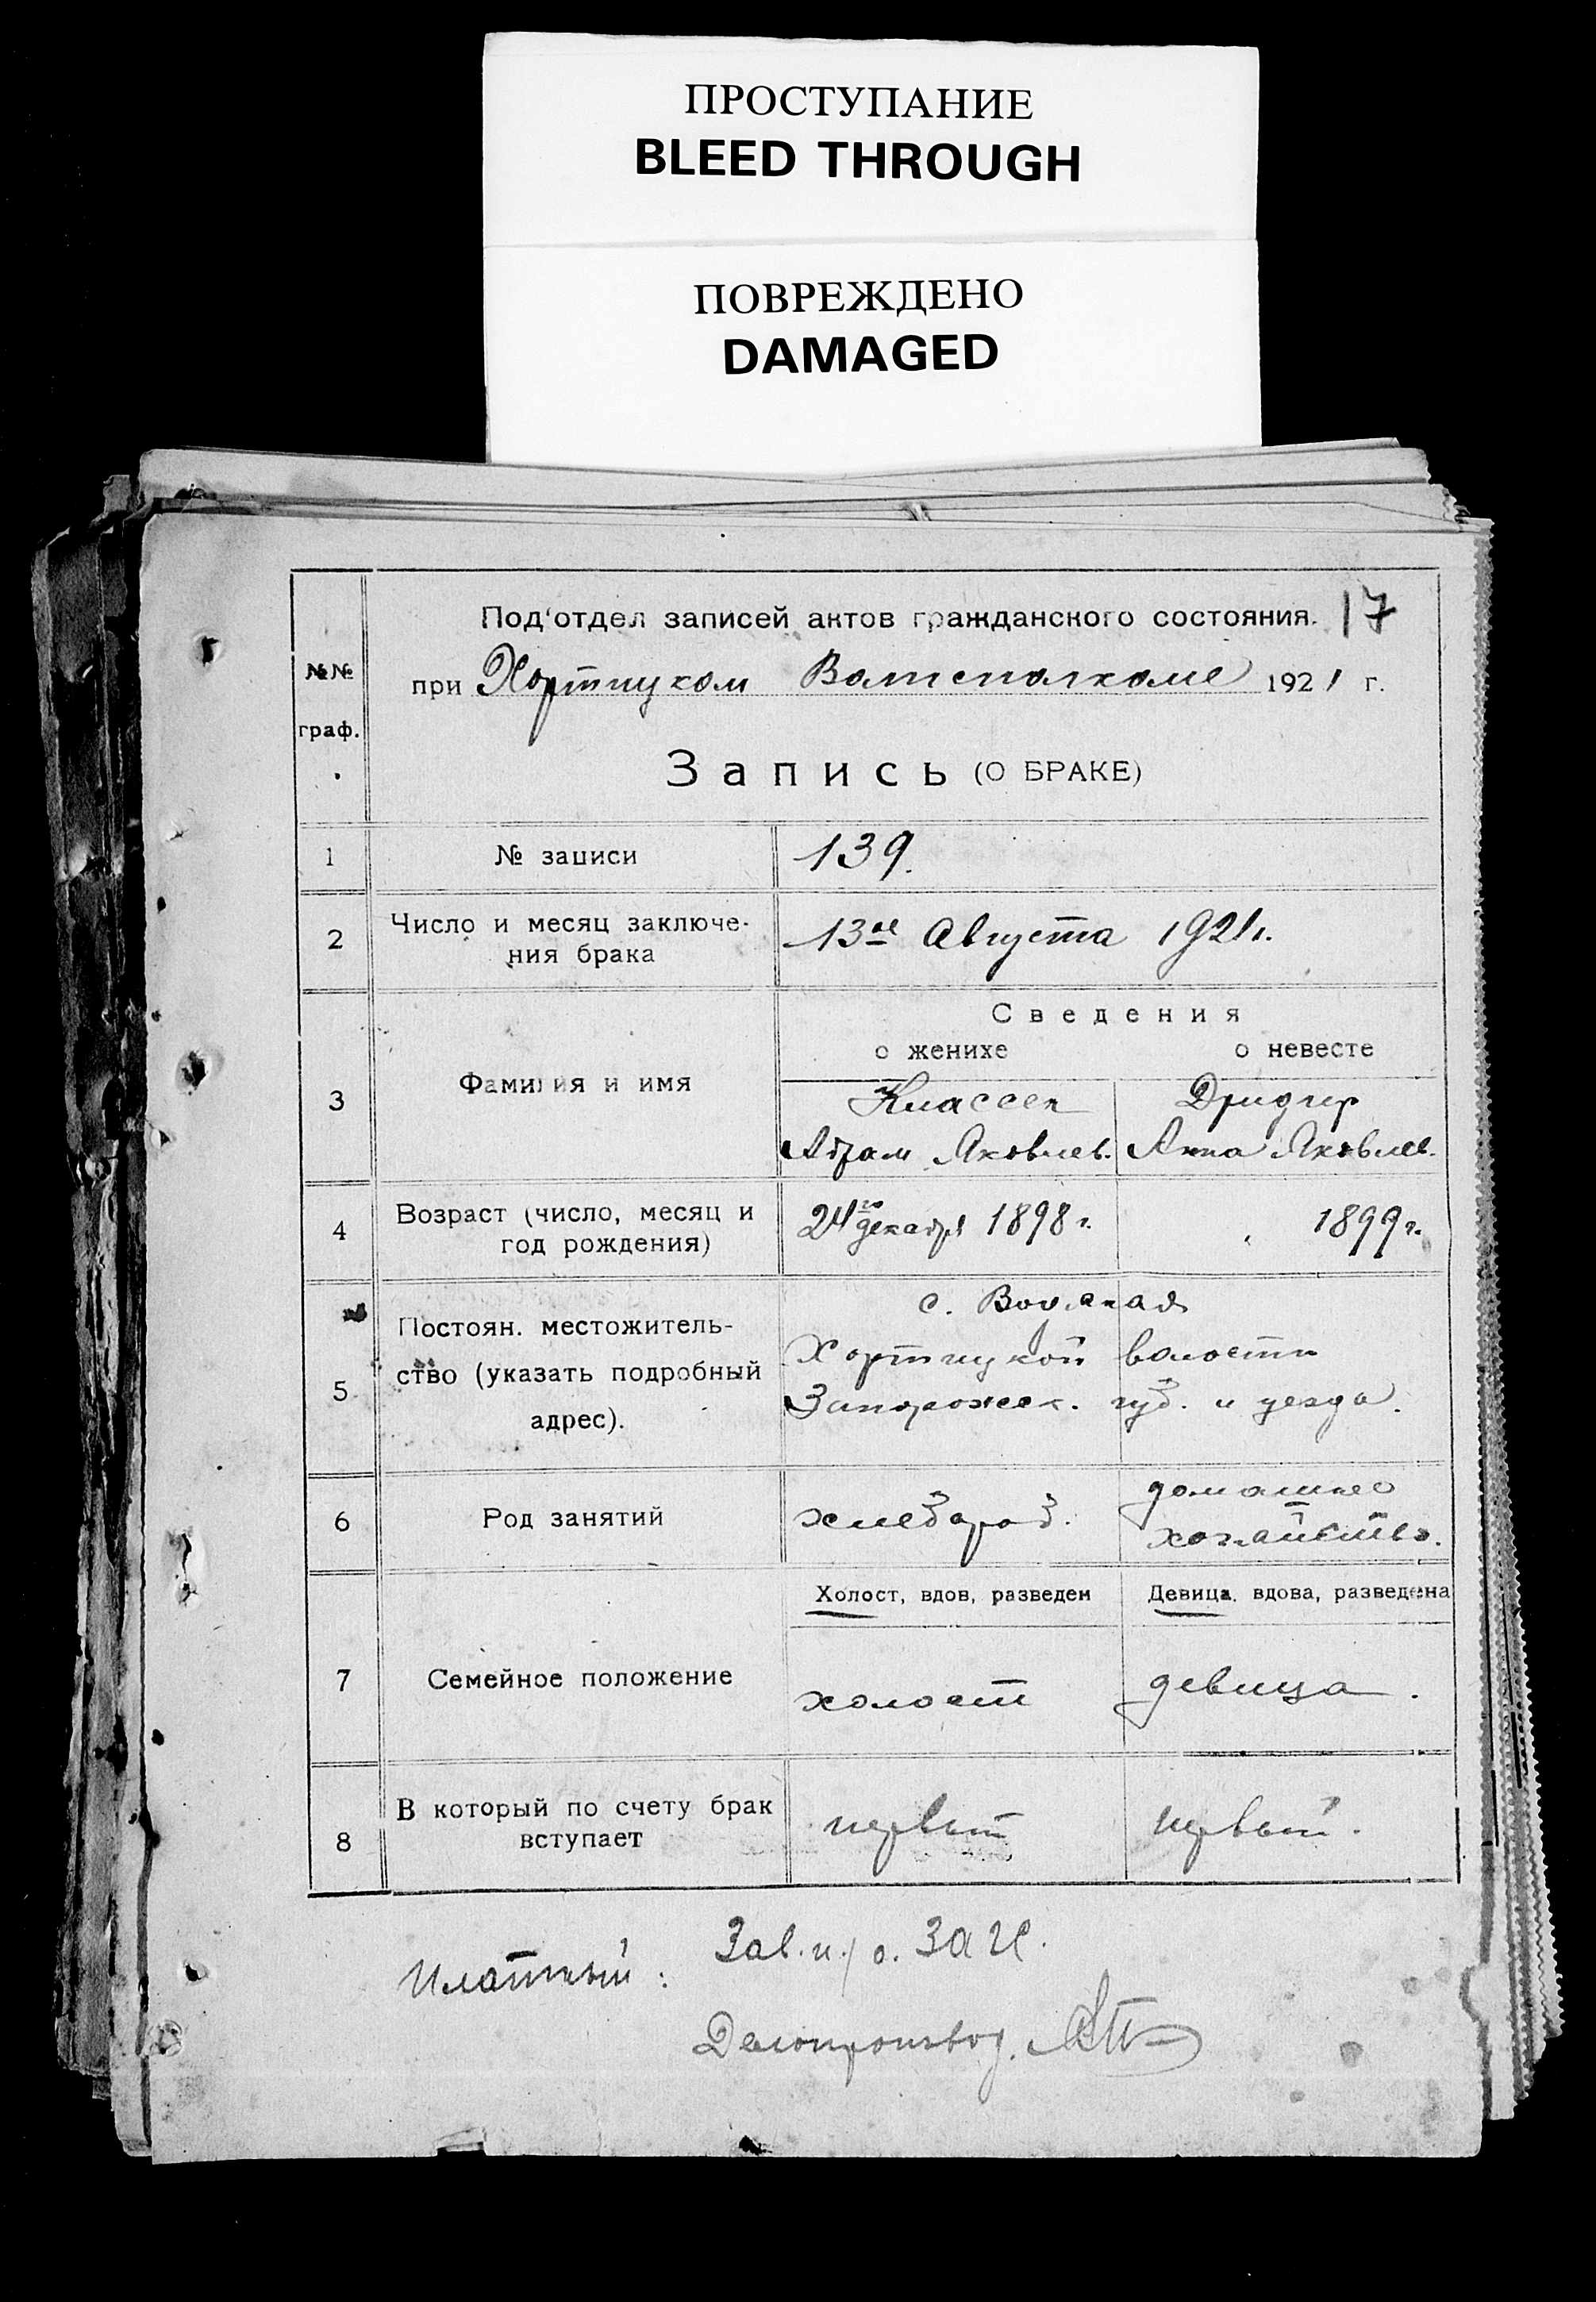 ПРОСТУПАНИЕ
BLEED THROUGH
ПОВРЕЖДЕНО
DAMAGED
17
Под'отдел записей актов гражданского состояния.
при Хортицком Волисполкоме 1921 г.
№№
граф.
Запись (О БРАКЕ)
1 № записи 139.
2 Число и месяц заключе-
ния брака
13го Августа 1921г.
Сведения
о женихе о невесте
3 Фамилия и имя
Классен Дридгер
Абрам Яковлев. Анна Яковлев.
4 Возраст (число, месяц и
год рождения)
24го декабря 1898 г. 1899 г.
5 Постоян. местожитель-
ство (указать подробный
адрес).
с.
Хортицкой волости
Запорожск. губ. и уезда.
6 Род занятий
хлебороб. домашнее
хозяйство.
Холост, вдов, разведен Девица, вдова, разведена
7 Семейное положение
холост девица.
8 В который по счету брак
вступает
первый первый.
Зав. п/о. ЗАГС.
Делопроизвод.